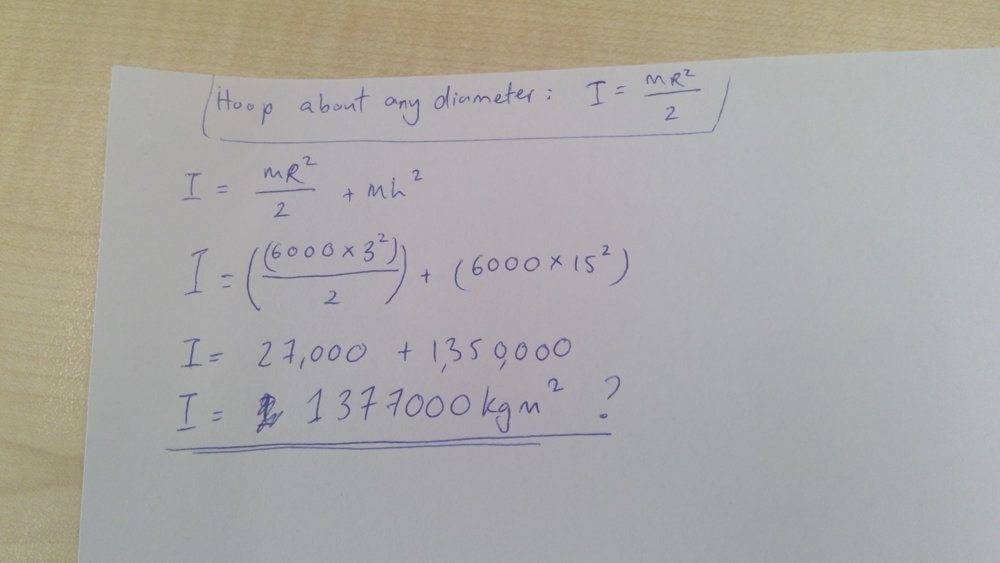 Hoop about any diameter: I = mR²/2
I = mR²/2 + mh²
I = ((6000 × 3²)/2) + (6000 × 15²)
I = 27,000 + 1,350,000
I = 1377000 kgm² ?